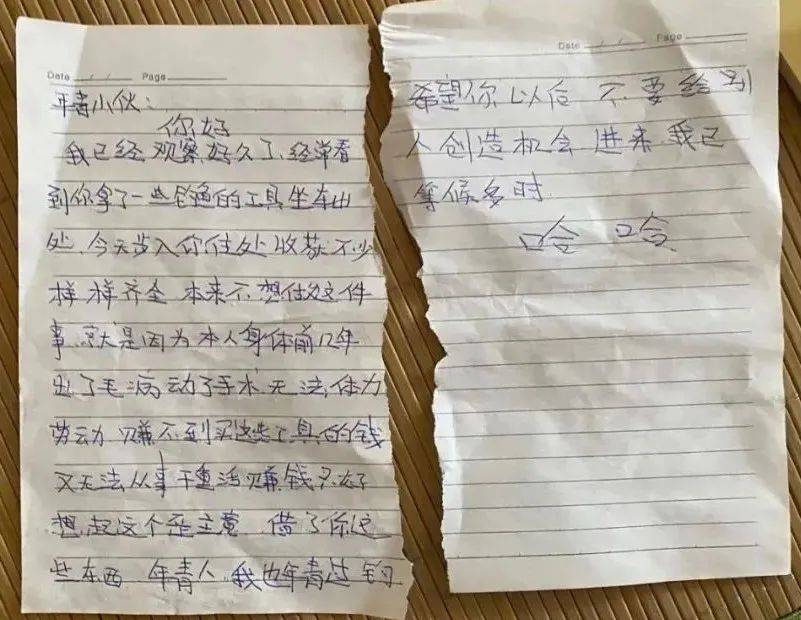 Date / / Page
年青小伙：
你好
我已经观察好久了,经常看
到你拿了一些钓鱼的工具坐车出
处,今天步入你住处收获不少
样样齐全 本来不想做这件
事,就是因为本人身体前几年
出了毛病动了手术 无法体力
劳动 赚不到买这些工具的钱
又无法从事干重活赚钱只好
想起这个歪主意 借了你这
些东西 年青人,我也年青过 钓
Date / / Page
希望你以后 不要给别
人创造机会 进来 我已
等候多时
哈哈